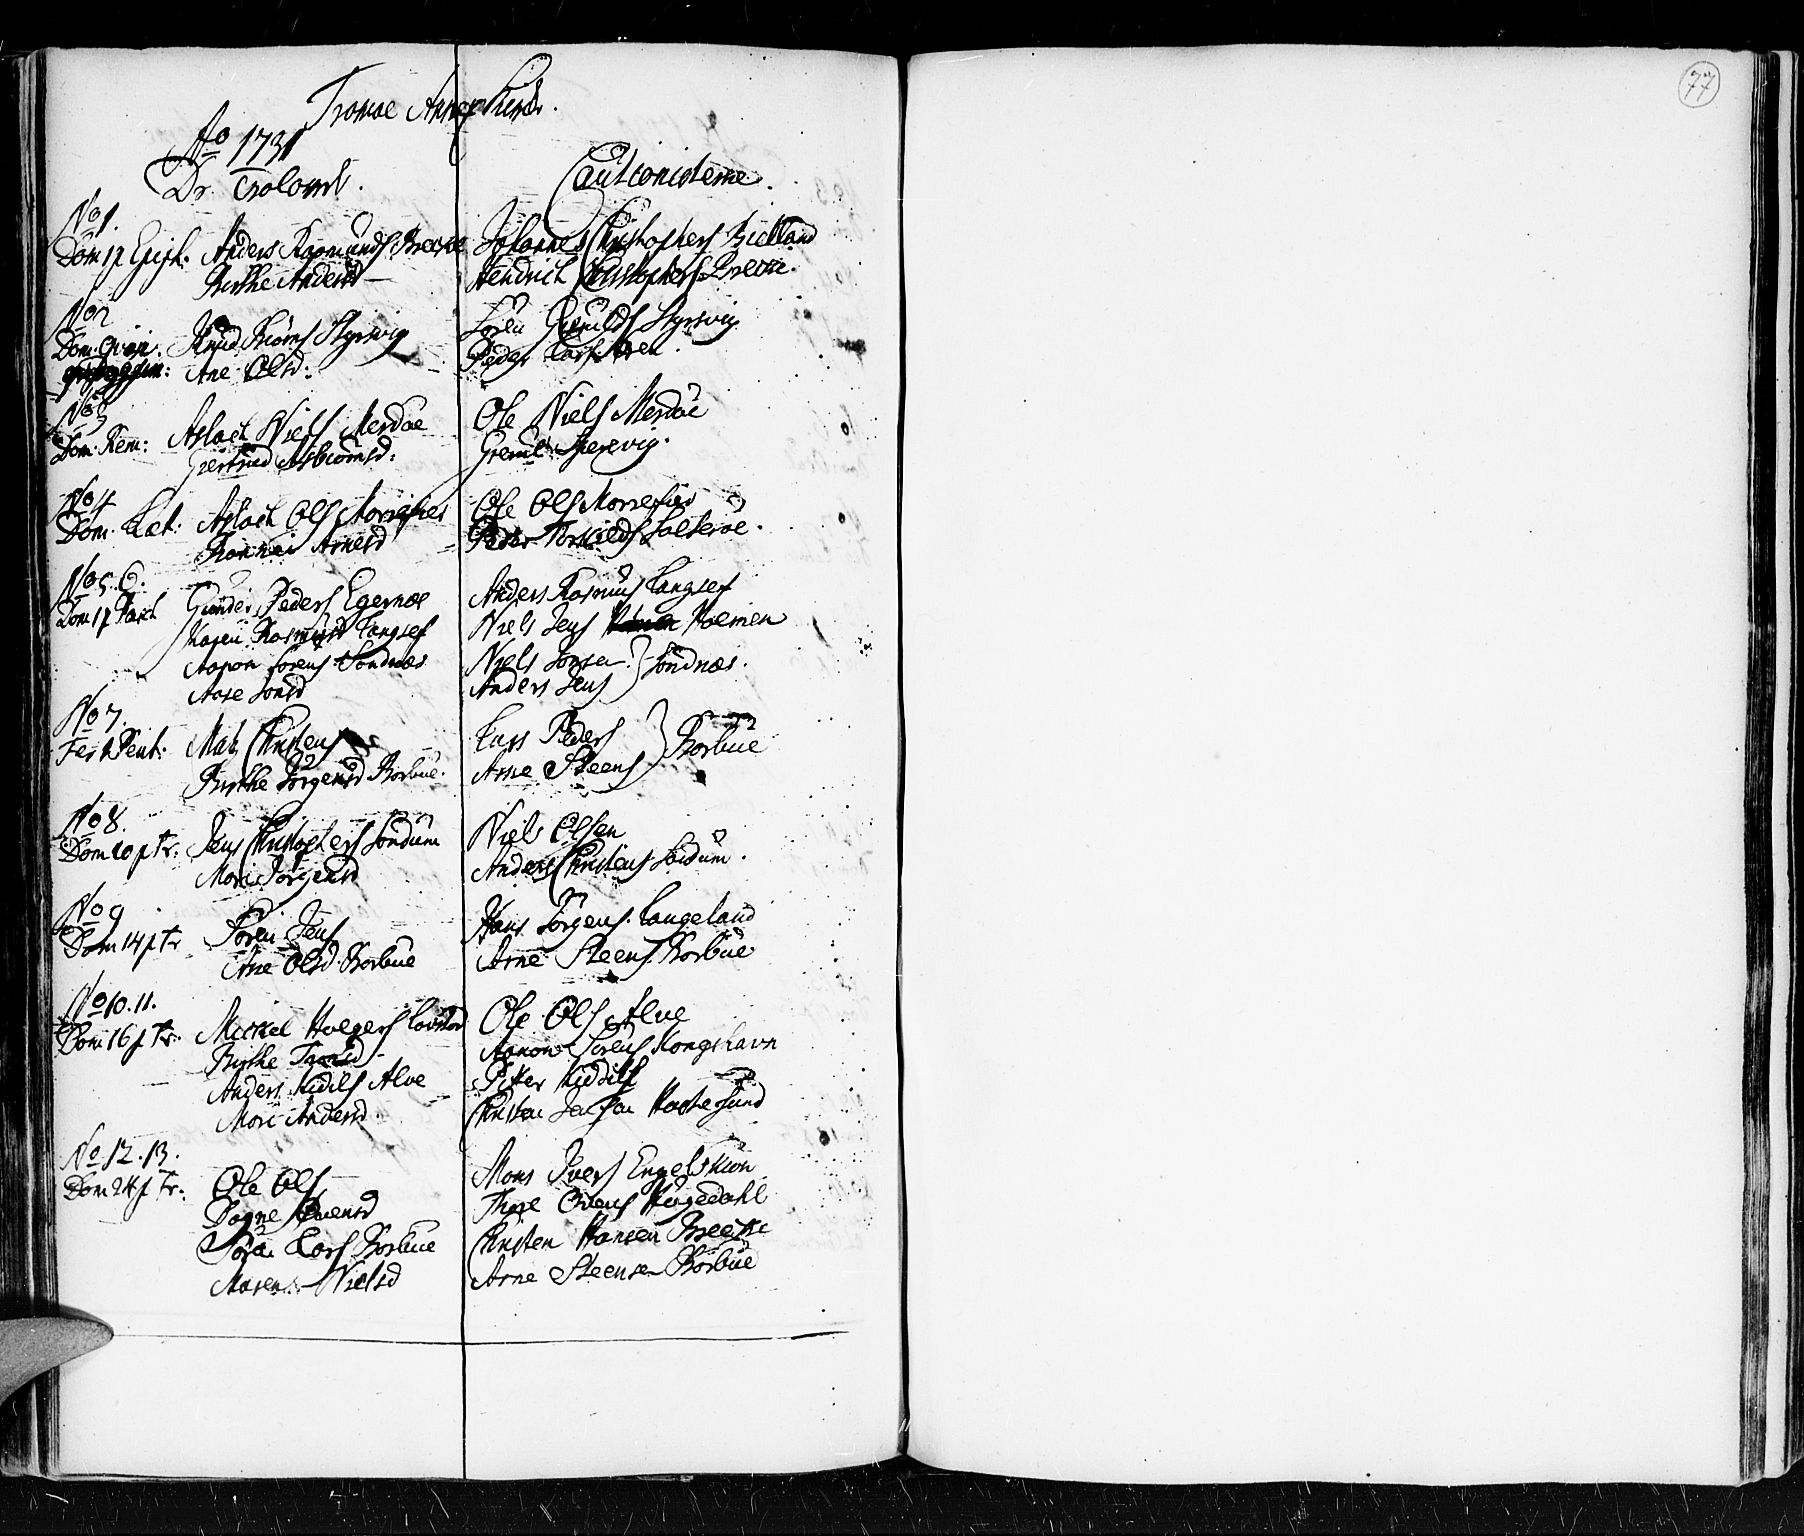 77
Tromøe Annex Kirke.
Ao 1731
Dr. Trolovede.
Cautionisterne.
No 1.
Dom 1 p Epiph: Anders Rasmunds Brecke
Birthe Andersd
Johannes Christophers Bielland
Hendrich Christophers Brecke.
No 2
Dom. Qvinqv. Knud Biørns Styrsvig
Ane Olsd:
Søren Gremilds Styrsvig
Peder Lars
No 3
Dom. Rem: Aslach Niels Merdøe
Giertrud Asbiørnsd:
Ole Niels Merdøe
Gremil Skersvig.
No 4
Dom. Læt: Aslach Ols
Rannei Arnesd
Ole Ols
Peder Torkilds Salterøe.
No 5. 6.
Dom 1 p Pasch Gunder Peders Egernæs
Karen Rasmusd Langsef
Aanon Sørens Sondnæs
Aase Jonsd
Anders Rasmus Langsef
Niels Jens Holmen
Niels Jonsen
Anders Jens } Sondnæs.
No 7.
Fer 2 Pent: Mats Christens
Birthe Jørgensd Borbue.
Lars Peders
Arne Steens } Borbue
No 8.
Dom 10 p Tr: Jens Christophers Sondum
Mari Jørgensd
Niels Olsen
Anders Christens Sondum.
No 9
Dom 14 p Tr Søren Jens
Ane Olsd. Borbue
Hans Jørgens. Langeland
Arne Steens Borbue
No 10. 11.
Dom 16 p Tr: Mickel Holgers
Birthe Tronsd
Anders Kidils Alve
Mari Andersd
Ole Ols Alve
Aanon Sørens Kongshavn
Peter Kiddils
Christen Jensen Hastesund
No 12. 13.
Dom 24 p Tr: Ole Ols
Dagne Svensd
Søren Lars Borbue
Maren Nielsd
Mons Ivers Engelskiøn
Thore Ovens Hugedahl
Christen Hansen Brecke
Arne Steensen Borbue